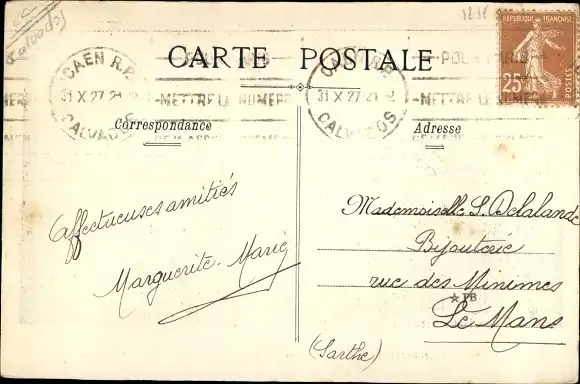 (Calvados)
CARTE POSTALE
RÉPUBLIQUE FRANÇAISE
25
POSTES
CAEN R.P.
31 X 27 21
CALVADOS
METTRE LE NUMERO
CAEN R.P.
31 X 27 21
CALVADOS
POUR
METTRE LE NUMERO
Correspondance
Adresse
Affectueuses amitiés
Marguerite-Marie
Mademoiselle S. Delalande
Bijouterie
rue des Minimes
PB
Le Mans
(Sarthe)